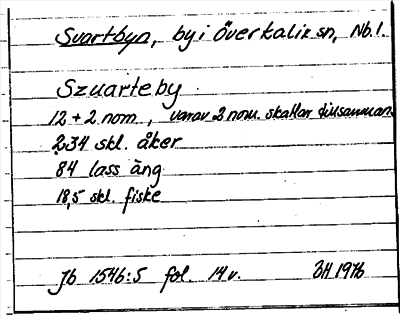 Svartbyn, by i Överkalix sn, Nb.l.
Szuarteby
12 + 2 nom., varav 2 nom. skattar tillsamman.
234 skl. åker
84 lass äng
18,5 skl. fiske
Jb 1546:5 fol. 14 v. BH 1976